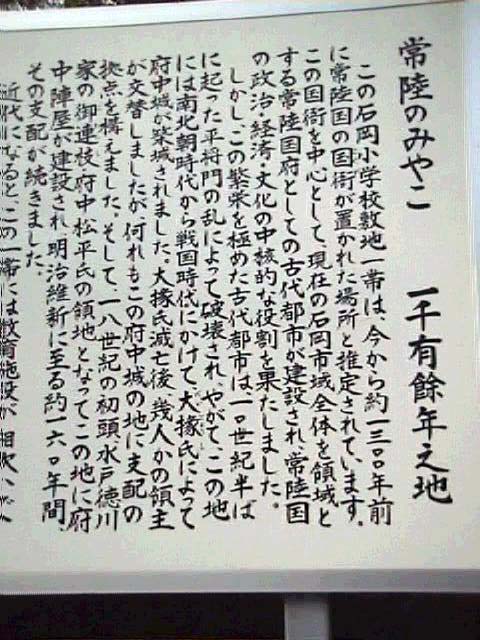 常陸のみやこ　一千有餘年之地
この石岡小学校敷地一帯は、今から約一三〇〇年前
に常陸国の国衙が置かれた場所と推定されています。
この国衙を中心として、現在の石岡市域全体を領域と
する常陸国府としての古代都市が建設され、常陸国
の政治・経済・文化の中核的な役割を果たしました。
しかし、この繁栄を極めた古代都市は、一〇世紀半ば
に起った平将門の乱によって破壊され、やがて、この地
には南北朝時代から戦国時代にかけて、大掾氏によって
府中城が築城されました。大掾氏滅亡後、幾人かの領主
が交替しましたが、何れもこの府中城の地に支配の
拠点を構えました。そして、一八世紀の初頭、水戸徳川
家の御連枝・府中松平氏の領地となってこの地に府
中陣屋が建設され、明治維新に至る約一六〇年間、
その支配が続きました。
近代になると、この一帯には教育施設が相次いで